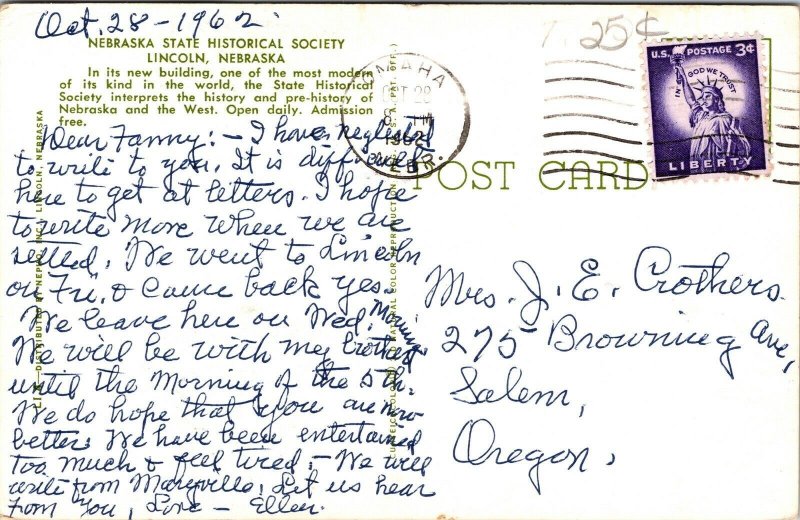 Oct. 28 - 1962
NEBRASKA STATE HISTORICAL SOCIETY
LINCOLN, NEBRASKA
In its new building, one of the most modern
of its kind in the world, the State Historical
Society interprets the history and pre-history of
Nebraska and the West. Open daily. Admission
free.
Dear Fanny: - I have neglected
to write to you. It is difficult
here to get at letters. I hope
to write more when we are
settled. We went to Lincoln
on Fri. & came back yes.
We leave here on Wed. Morning.
We will be with my brother
until the Morning of the 5th.
We do hope that you are now
better. We have been entertained
too much & feel tired. - We will
write from Maryville. Let us hear
from You, Love - Ellen.
DISTRIBUTED BY NEPPO, INC., LINCOLN, NEBRASKA
NATURAL COLOR REPRODUCTION
U.S.A. PAT. OFF.
OMAHA
OCT 28
1962
NEBR.
25¢
U.S. POSTAGE 3¢
IN GOD WE TRUST
LIBERTY
POST CARD
Mrs. J. E. Crothers.
275 Browning Ave,
Salem,
Oregon.